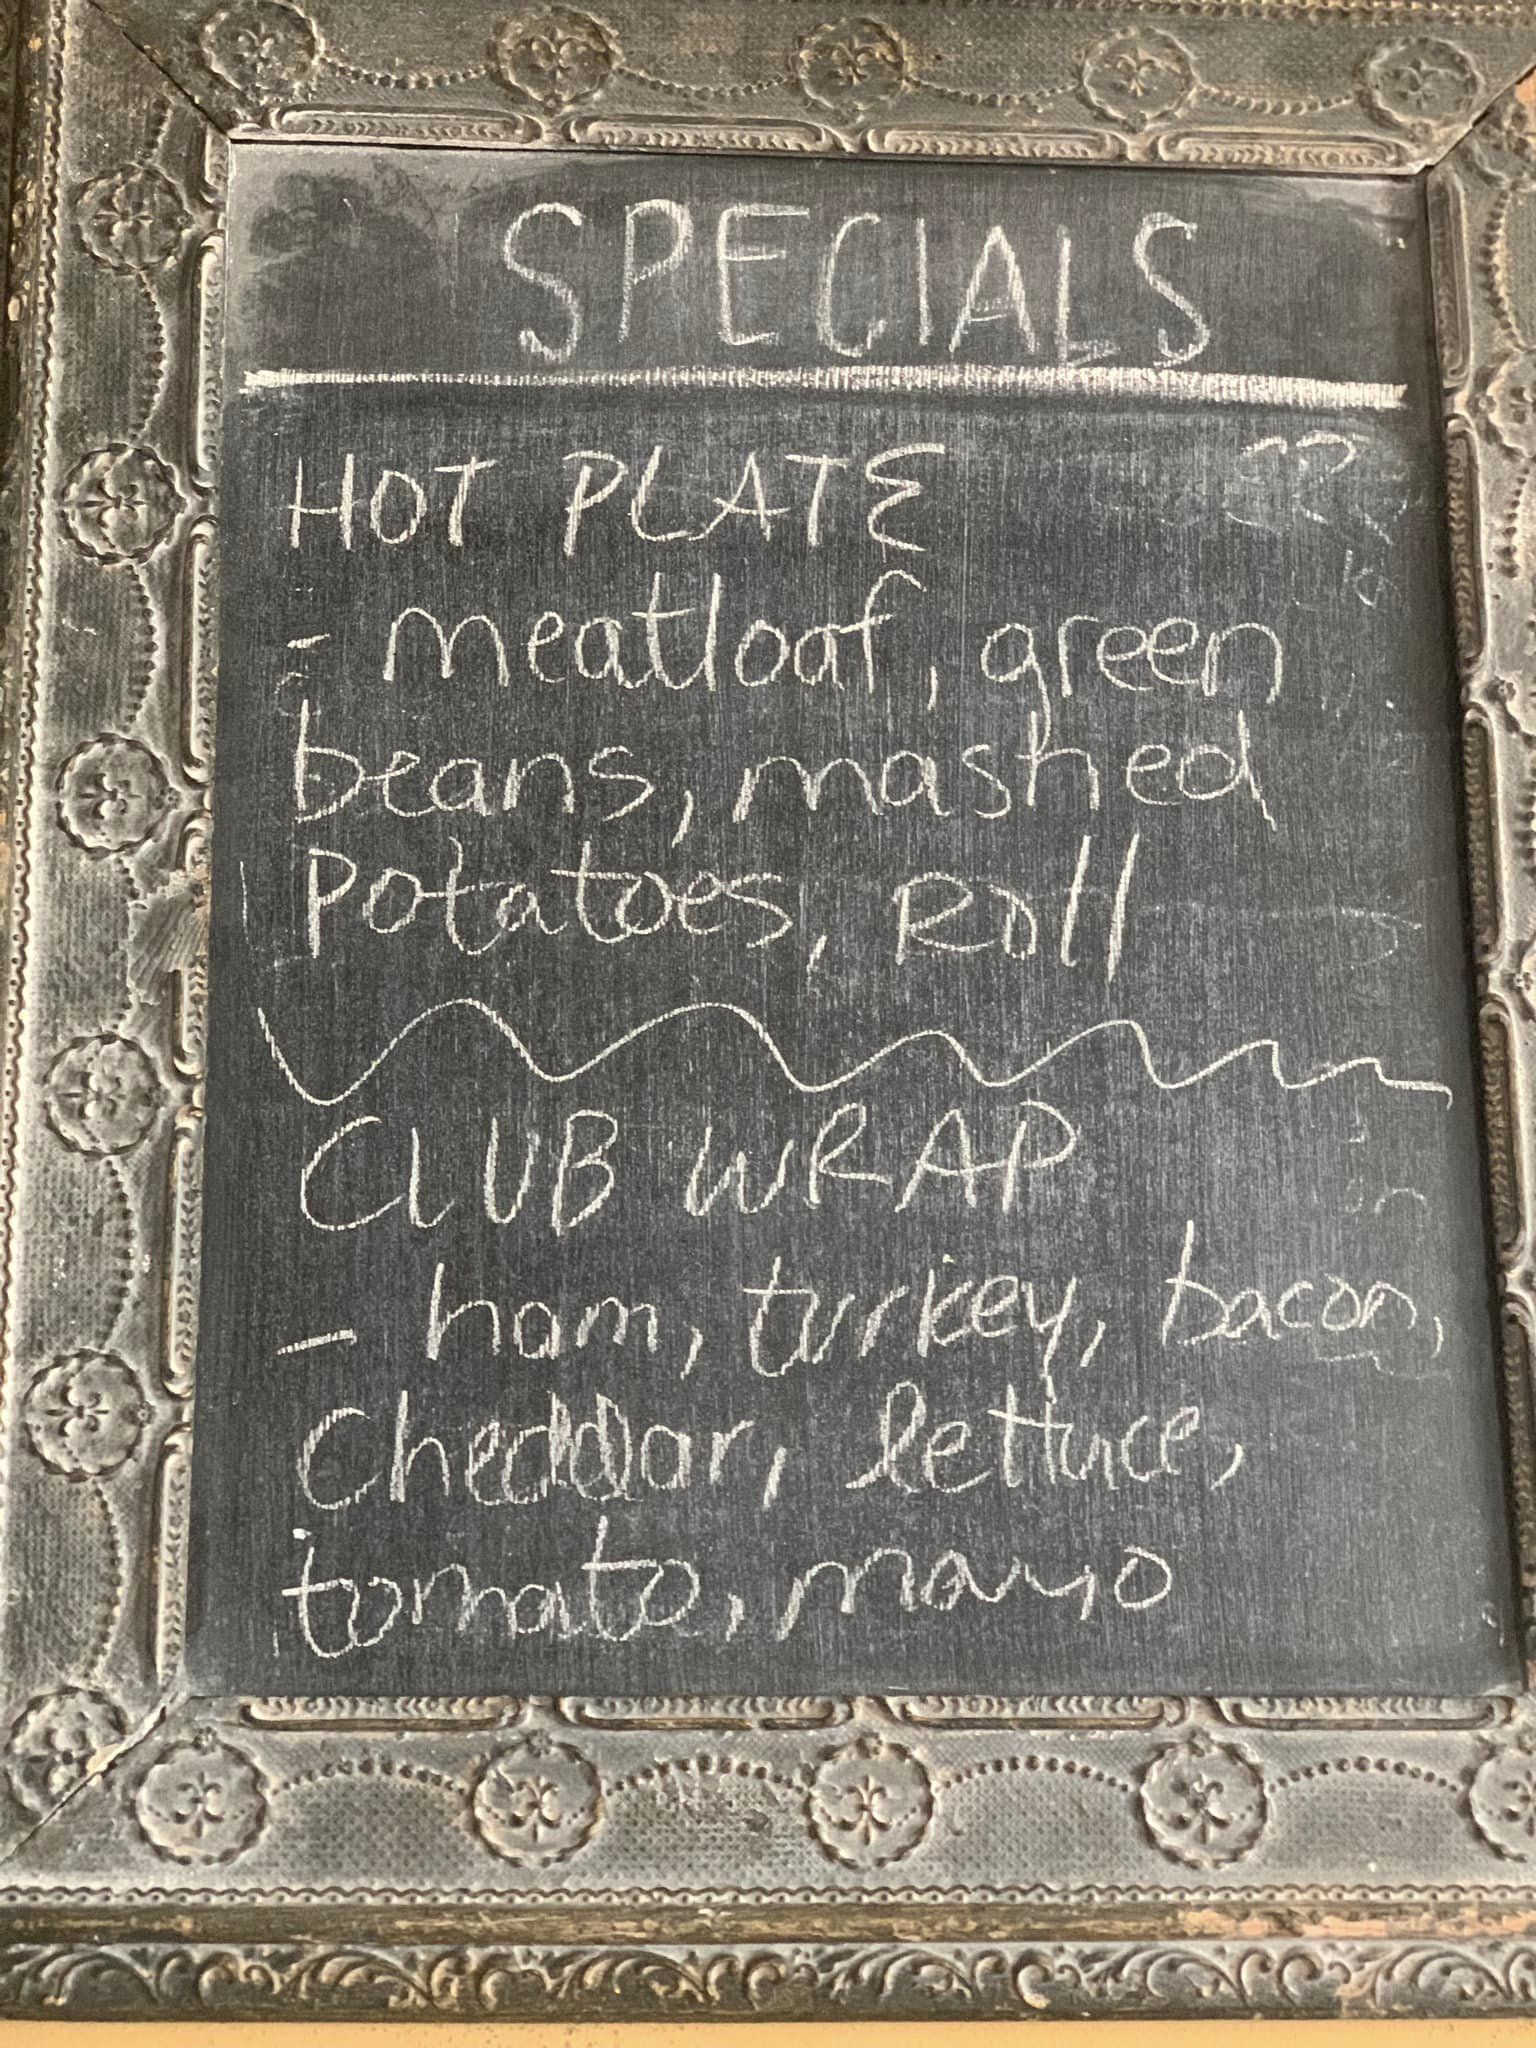 SPECIALS
HOT PLATE
- meatloaf, green
beans, mashed
Potatoes, Roll
CLUB WRAP
- ham, turkey, bacon,
Cheddar, lettuce,
tomato, mayo